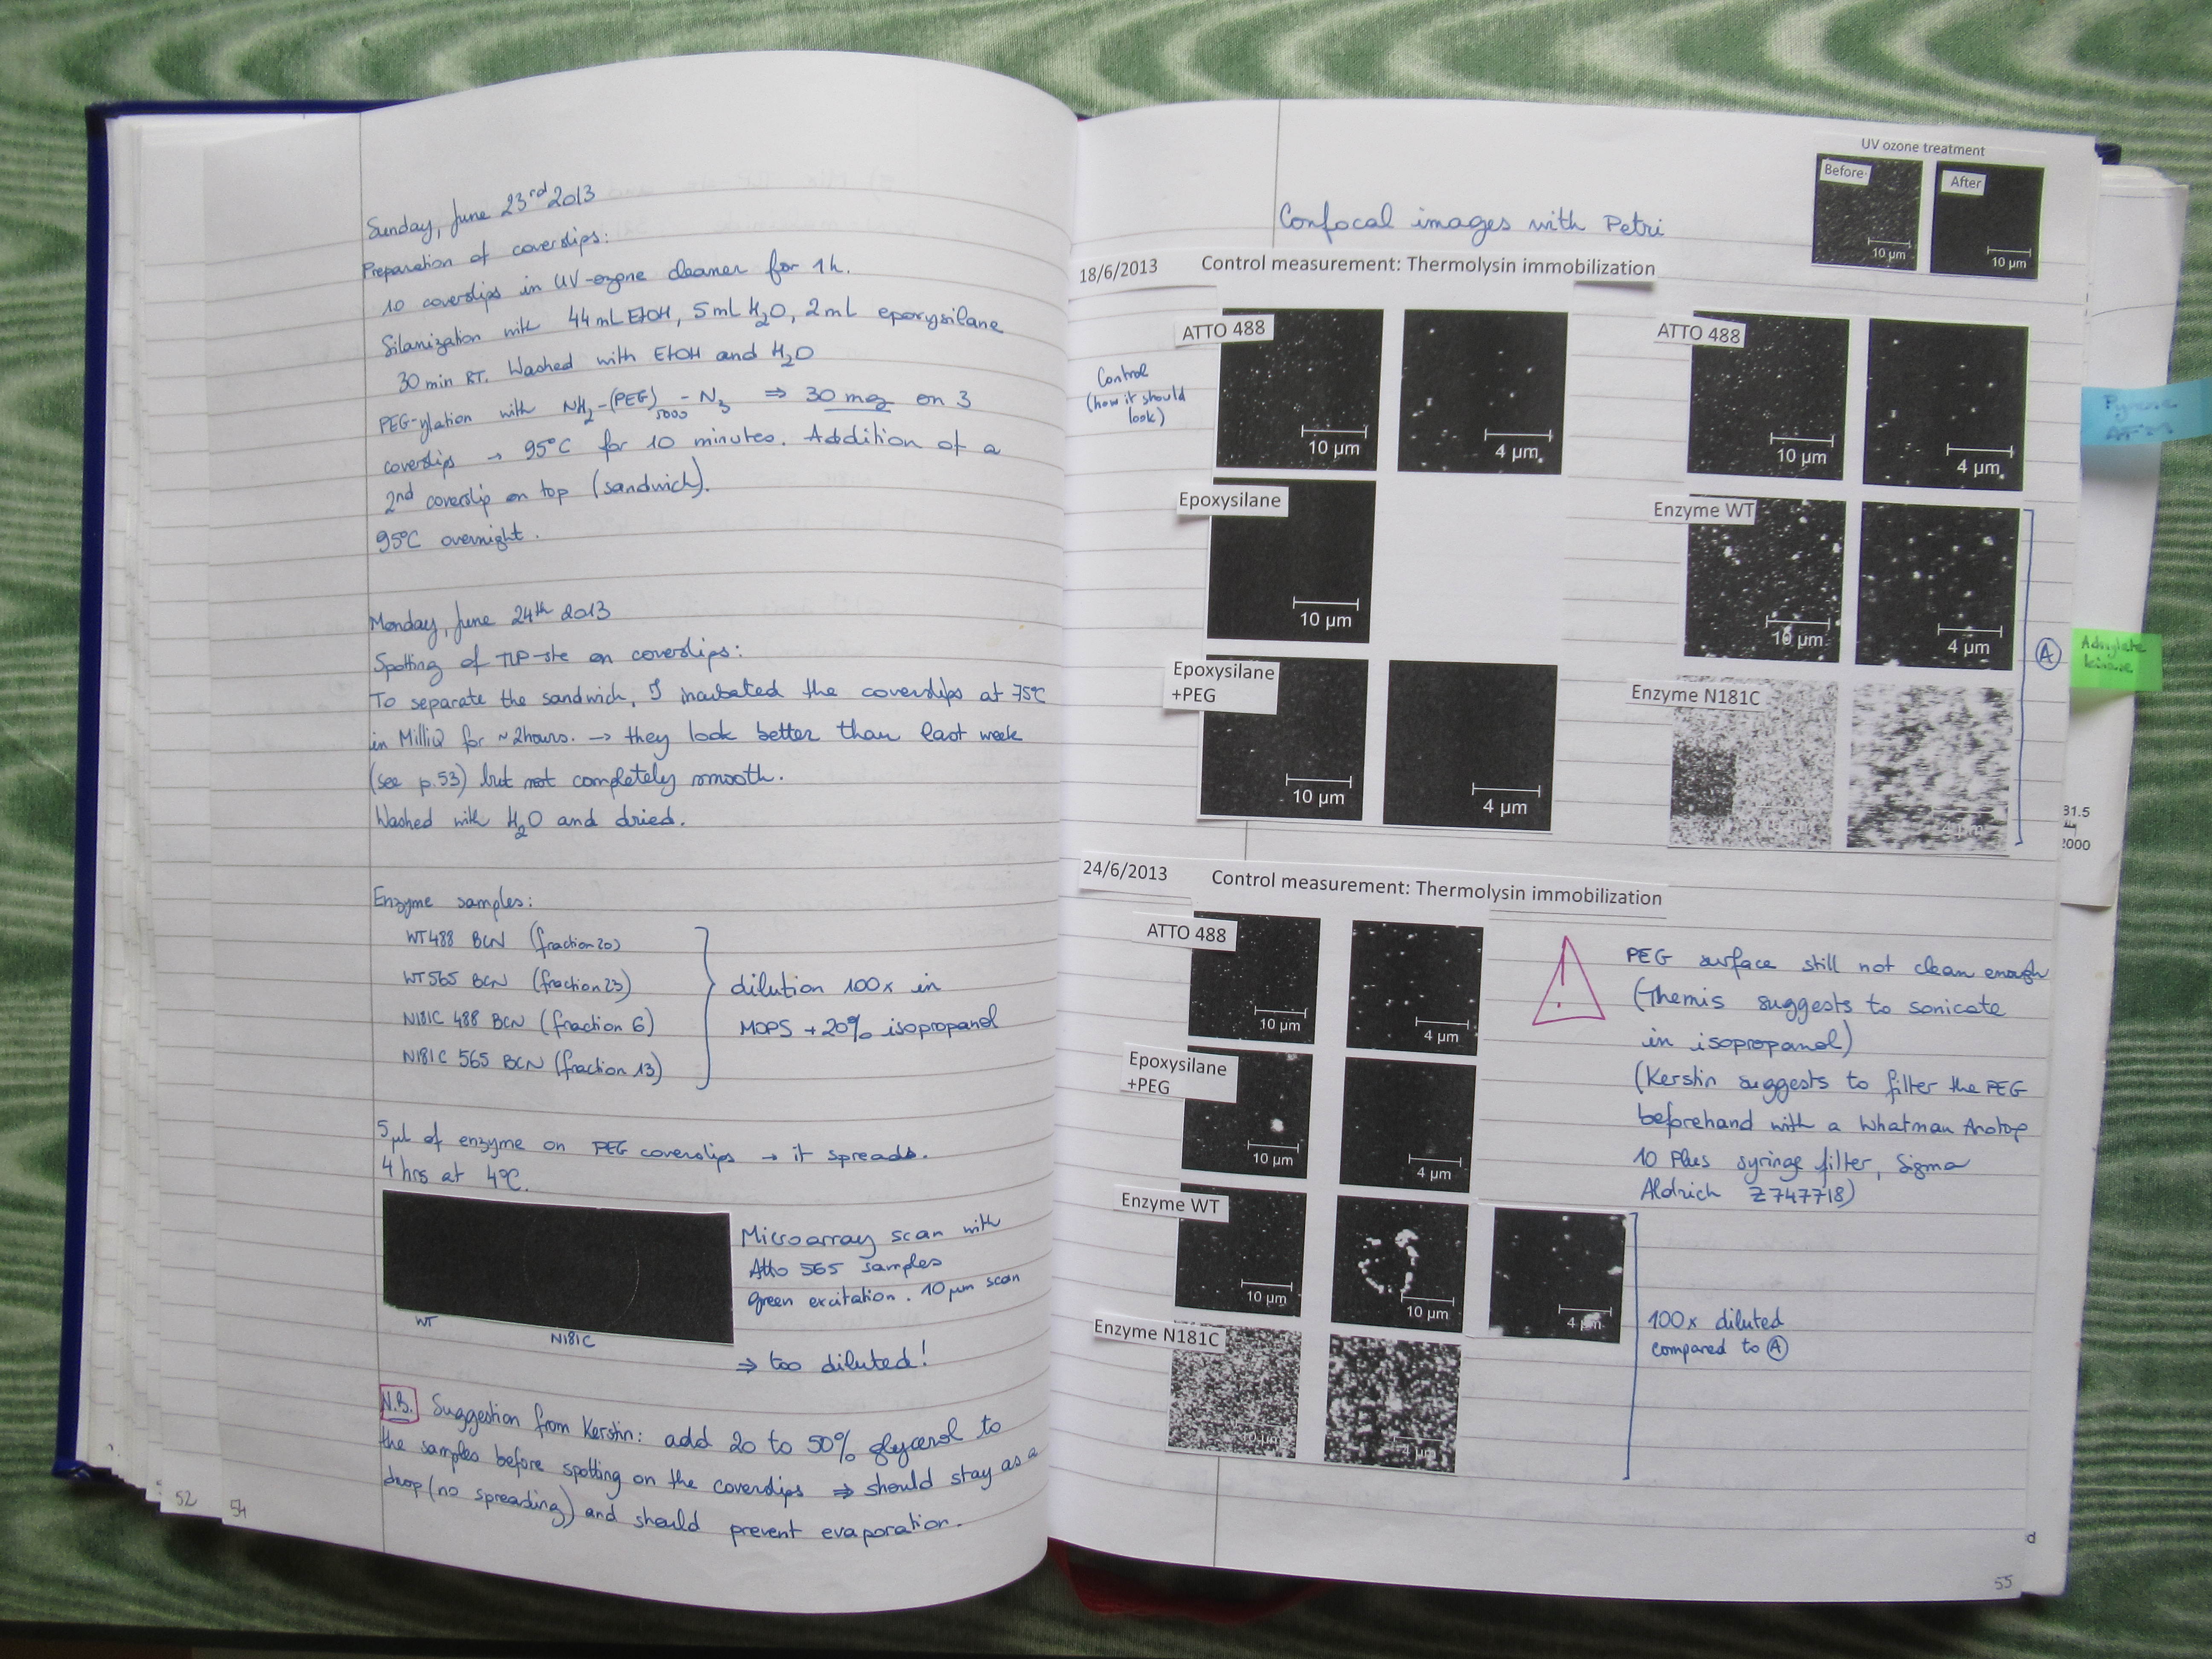 Sunday, June 23rd 2013
Preparation of coverslips:
10 coverslips in UV-ozone cleaner for 1h.
Silanization with 44 mL EtOH, 5 mL H2O, 2 mL epoxysilane
30 min RT. Washed with EtOH and H2O
PEG-ylation with NH2-(PEG)5000-N3 ⇒ 30 mg on 3
coverslips → 95°C for 10 minutes. Addition of a
2nd coverslip on top (sandwich).
95°C overnight.
Monday, June 24th 2013
Spotting of TLP-ste on coverslips:
To separate the sandwich, I incubated the coverslips at 75°C
in MilliQ for ~2hours. → they look better than last week
(see p.53) but not completely smooth.
Washed with H2O and dried.
Enzyme samples:
WT488 BCN (fraction 20)
WT565 BCN (fraction 23)
N181C 488 BCN (fraction 6)
N181C 565 BCN (fraction 13)
dilution 100x in
MOPS + 20% isopropanol
5 µl of enzyme on PEG coverslips → it spreads.
4 hrs at 4°C.
Microarray scan with
Atto 565 samples
green excitation. 10 µm scan
⇒ too diluted!
WT
N181C
N.B. Suggestion from Kerstin: add 20 to 50% glycerol to
the samples before spotting on the coverslips ⇒ should stay as a
drop (no spreading) and should prevent evaporation.
52
54
UV ozone treatment
Before
After
10 µm
10 µm
Confocal images with Petri
18/6/2013
Control measurement: Thermolysin immobilization
Control
(how it should
look)
ATTO 488
10 µm
4 µm
ATTO 488
10 µm
4 µm
Epoxysilane
10 µm
Enzyme WT
10 µm
4 µm
Epoxysilane
+PEG
10 µm
4 µm
Enzyme N181C
A
24/6/2013
Control measurement: Thermolysin immobilization
ATTO 488
10 µm
4 µm
Epoxysilane
+PEG
10 µm
4 µm
Enzyme WT
10 µm
10 µm
4 µm
Enzyme N181C
10 µm
4 µm
!
PEG surface still not clean enough
(Themis suggests to sonicate
in isopropanol)
(Kerstin suggests to filter the PEG
beforehand with a Whatman Anotop
10 Plus syringe filter, Sigma
Aldrich Z747718)
100x diluted
compared to A
Pyrene
Adenylate
kinase
31.5
2000
d
55